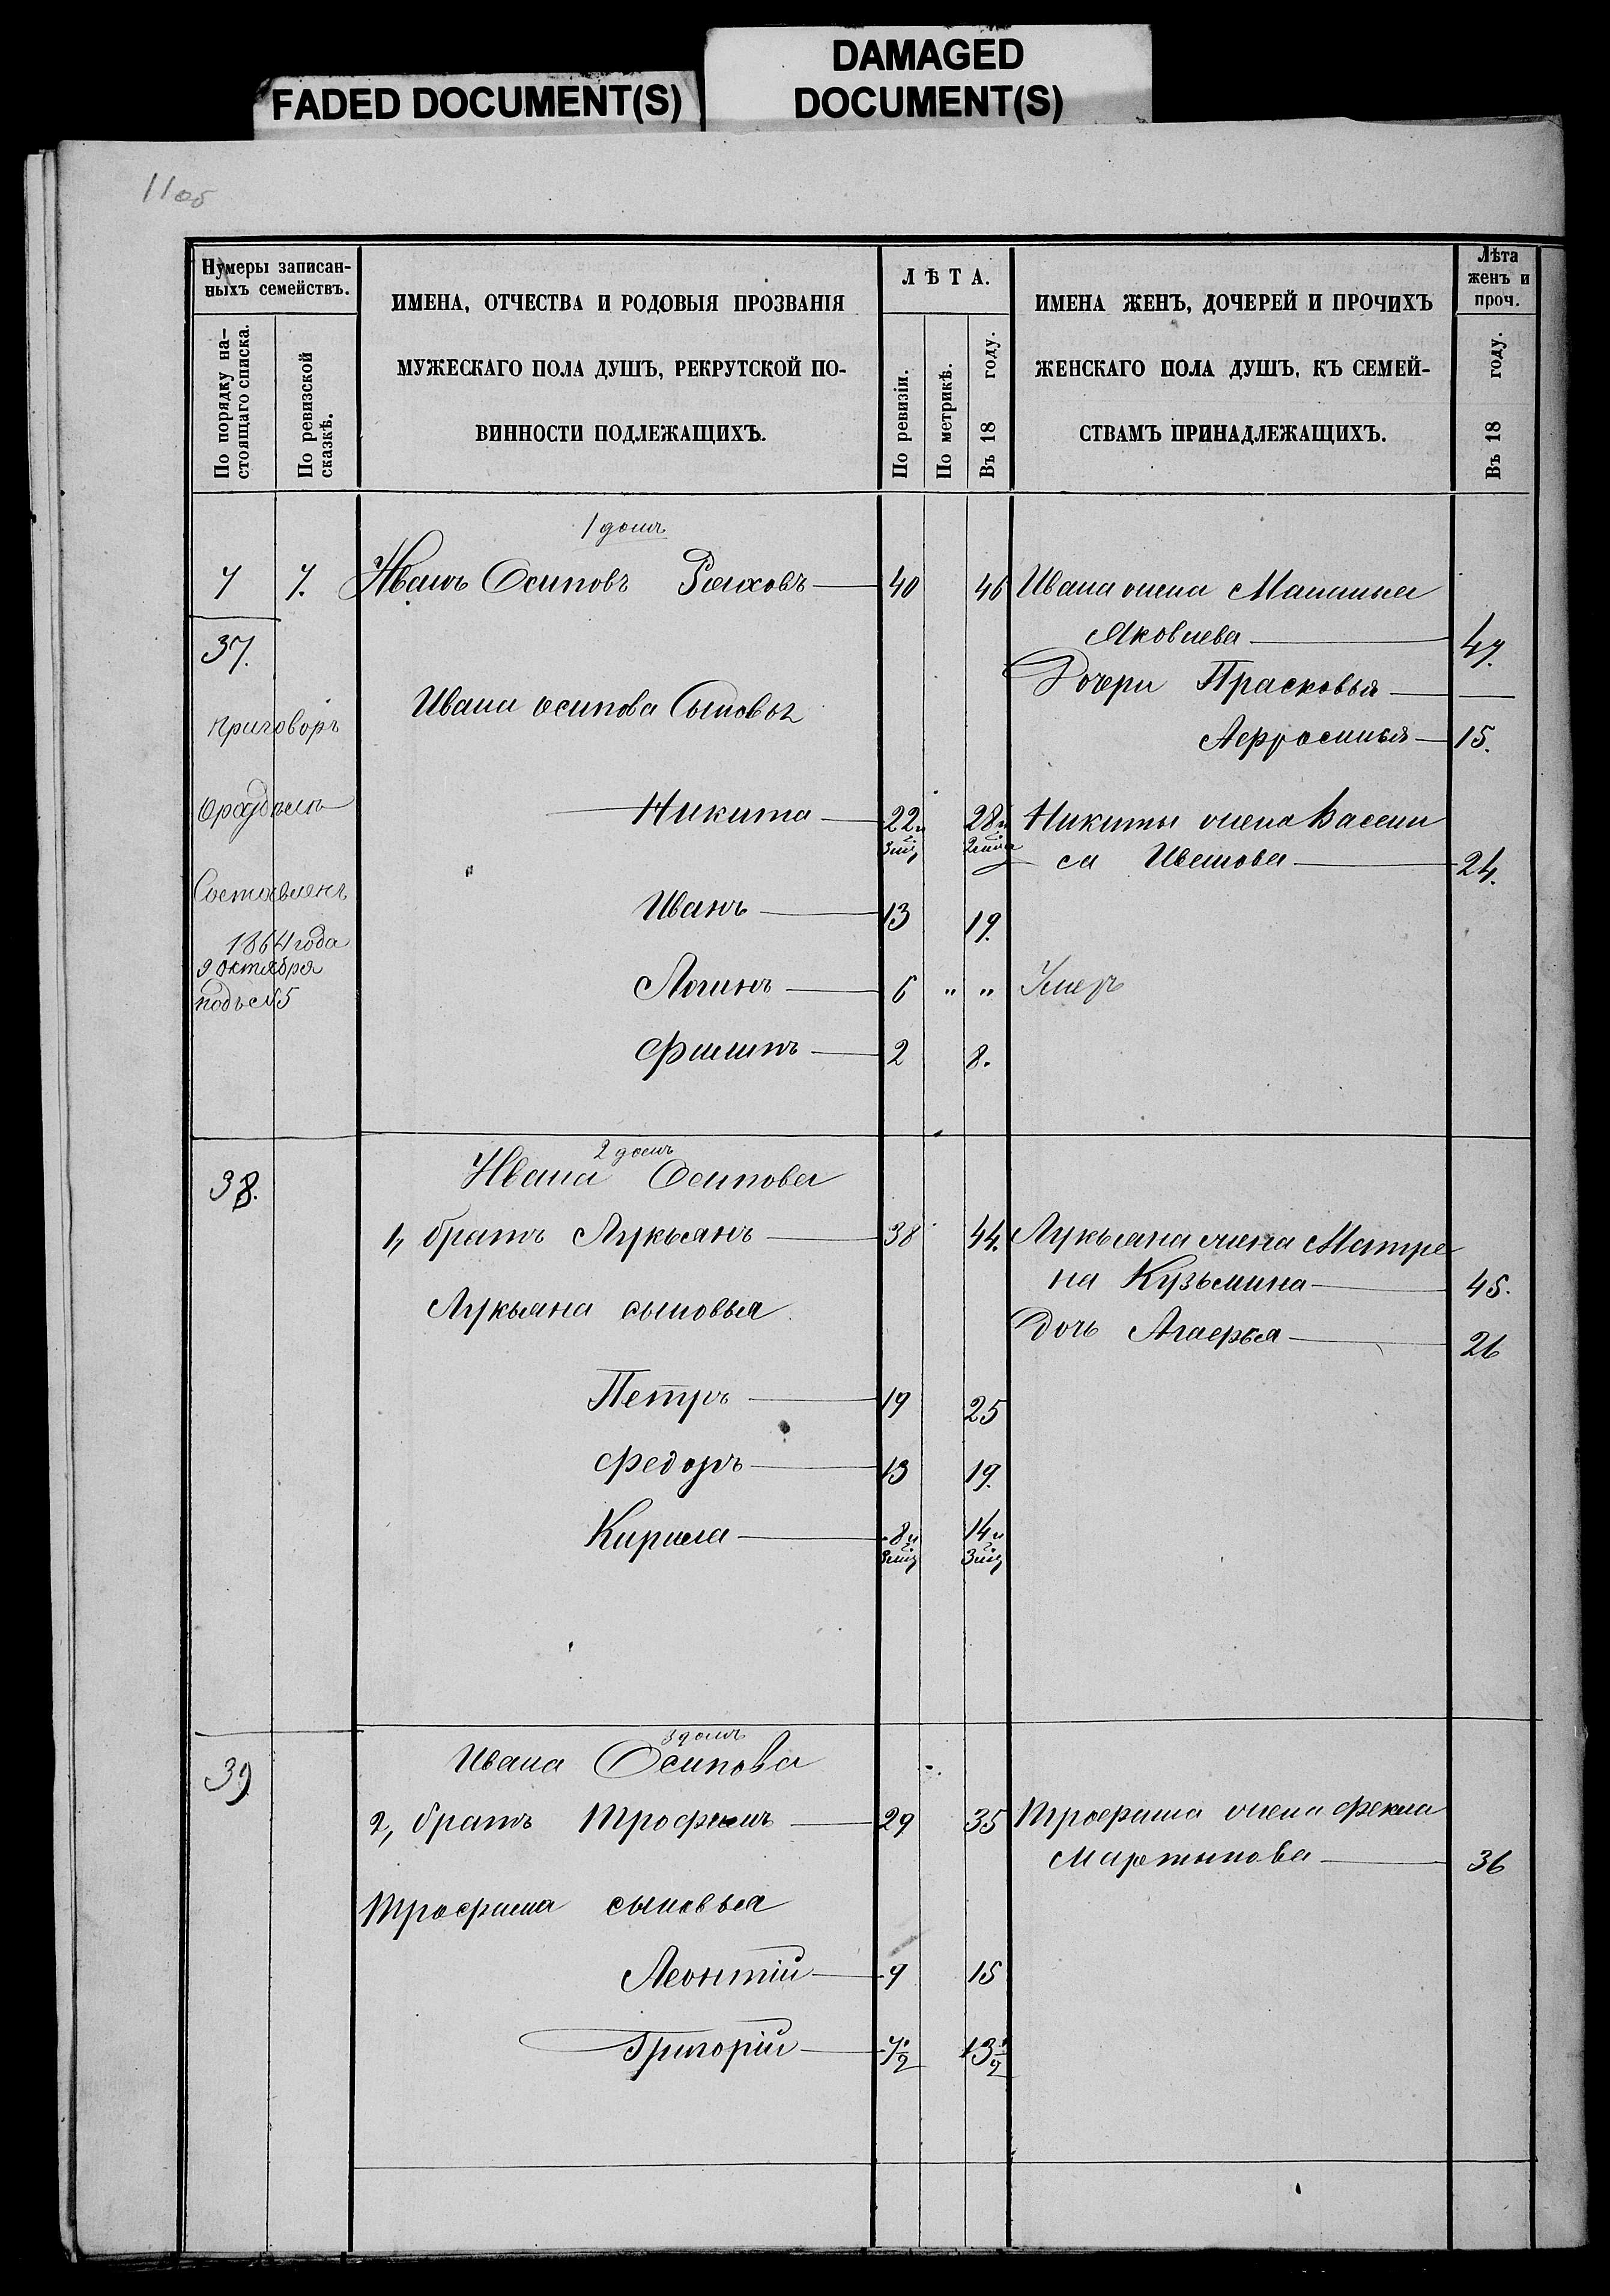 FADED DOCUMENT(S)
DAMAGED
DOCUMENT(S)
11об
Нумеры записан-
ныхъ семействъ.
По порядку на-
стоящаго списка.
По ревизской
сказкѣ.
ИМЕНА, ОТЧЕСТВА И РОДОВЫЯ ПРОЗВАНІЯ
МУЖЕСКАГО ПОЛА ДУШЪ, РЕКРУТСКОЙ ПО-
ВИННОСТИ ПОДЛЕЖАЩИХЪ.
ЛѢТА.
По ревизіи.
По метрикѣ.
Въ 18 году.
ИМЕНА ЖЕНЪ, ДОЧЕРЕЙ И ПРОЧИХЪ
ЖЕНСКАГО ПОЛА ДУШЪ, КЪ СЕМЕЙ-
СТВАМЪ ПРИНАДЛЕЖАЩИХЪ.
Лѣта
женъ и
проч.
Въ 18 году.
1 домъ
7 7. Иванъ Осиповъ 40 46 Ивана жена
37. Яковлева 47.
Дочери Прасковья —
Ивана осипова Сыновья
приговоръ
Аффосинья 15.
о раздѣлѣ
Никита 22 и 28 и Никиты жена Васили
3 мц са 24.
Составленъ
Иванъ 13 19.
1864 года
9 октября
подъ №5
Логинъ 6 " " Умеръ
Филипъ 2 8.
2 домъ
38. Ивана Осипова
1, братъ Лукьянъ 38 44. Лукьяна жена Матре
на Кузьмина 45.
Лукьяна сыновья
Дочь Агафья 26
Петръ 19 25
Федоръ 13 19.
Кирила 8 и 14 и
3 мц 3 мц
3 домъ
39 Ивана Осипова
2, братъ Трофимъ 29 35 Трофима жена Фекла
Мартынова 36
Трофима сыновья
Леонтій 9 15
Григорій 7½ 13½